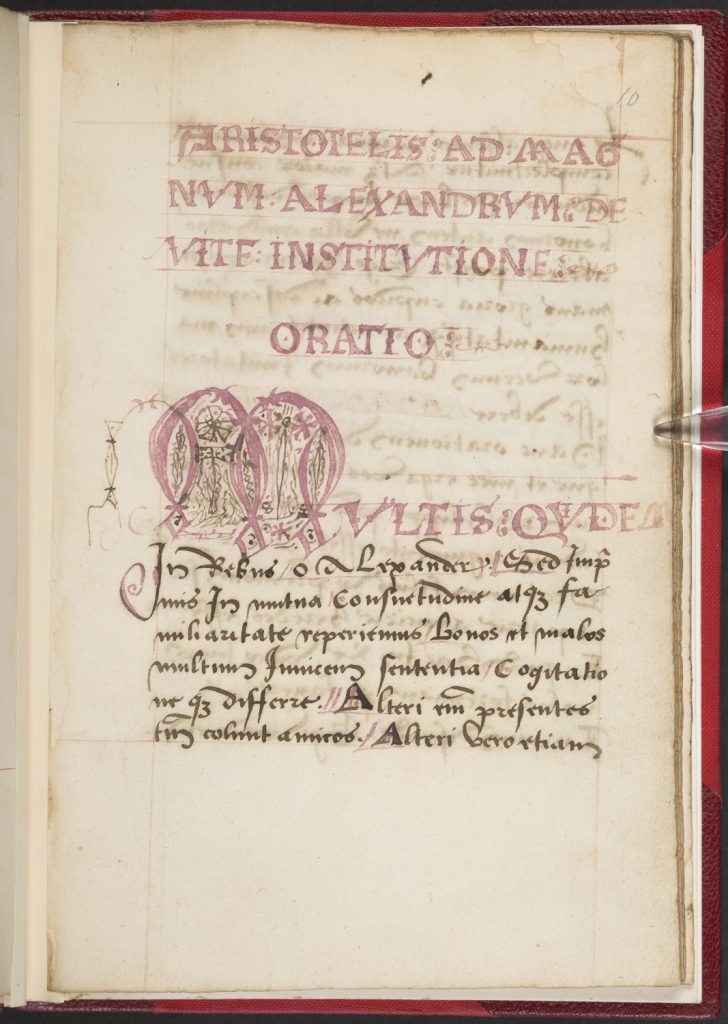 10
ARISTOTELIS: AD: MAG
NVM: ALEXANDRVM: DE
VITE: INSTITVTIONE:
ORATIO:
MVLTIS: QVIDEM
In Rebus / o Alexander / Sed Imp̄
imis In mutua / Consuetudine atqꝫ fa-
miliaritate reperiemus / Bonos et malos
multum Inuicem sententia / Cogitatio
ne qꝫ differre. // Alteri em̄ presentes
tm̄ colunt amicos. / Alteri vero etiam